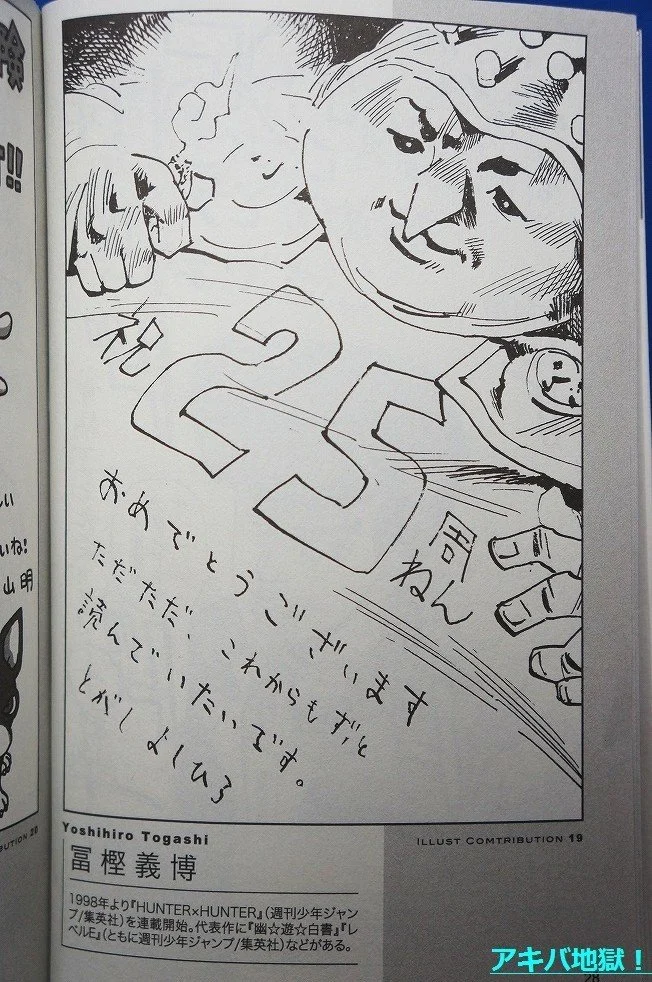 険
!!
祝25周ねん
おめでとうございます
ただただ、これからもずっと
読んでいたいです。
とがしよしひろ
しい
いね!
山明
BUTION 20
Yoshihiro Togashi
ILLUST COMTRIBUTION 19
冨樫義博
1998年より『HUNTER×HUNTER』(週刊少年ジャン
プ/集英社)を連載開始。代表作に『幽☆遊☆白書』『レ
ベルE』(ともに週刊少年ジャンプ/集英社)などがある。
28
アキバ地獄!